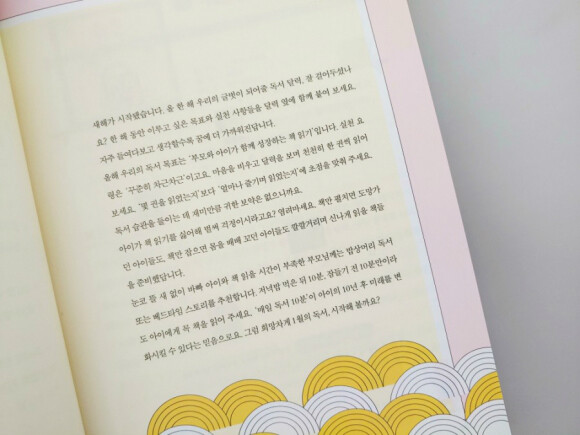 새해가 시작됐습니다. 올 한 해 우리의 금벗이 되어줄 독서 달력, 잘 걸어두셨나
요? 한 해 동안 이루고 싶은 목표와 실천 사항들을 달력 옆에 함께 붙여 보세요.
자주 들여다보고 생각할수록 꿈에 더 가까워진답니다.
올해 우리의 독서 목표는 ‘부모와 아이가 함께 성장하는 책 읽기’입니다. 실천 요
령은 ‘꾸준히 차근차근’이고요. 마음을 비우고 달력을 보며 천천히 한 권씩 읽어
보세요. ‘몇 권을 읽었는지’보다 ‘얼마나 즐기며 읽었는지’에 초점을 맞춰 주세요.
독서 습관을 들이는 데 재미만큼 귀한 보약은 없으니까요.
아이가 책 읽기를 싫어해 벌써 걱정이시라고요? 염려마세요. 책만 펼치면 도망가
던 아이들도, 책만 잡으면 몸을 배배 꼬던 아이들도 깔깔거리며 신나게 읽을 책들
을 준비했답니다.
눈코 뜰 새 없이 바빠 아이와 책 읽을 시간이 부족한 부모님께는 밥상머리 독서
또는 베드타임 스토리를 추천합니다. 저녁밥 먹은 뒤 10분, 잠들기 전 10분만이라
도 아이에게 꼭 책을 읽어 주세요. ‘매일 독서 10분’이 아이의 10년 후 미래를 변
화시킬 수 있다는 믿음으로요. 그럼 희망차게 1월의 독서, 시작해 볼까요?